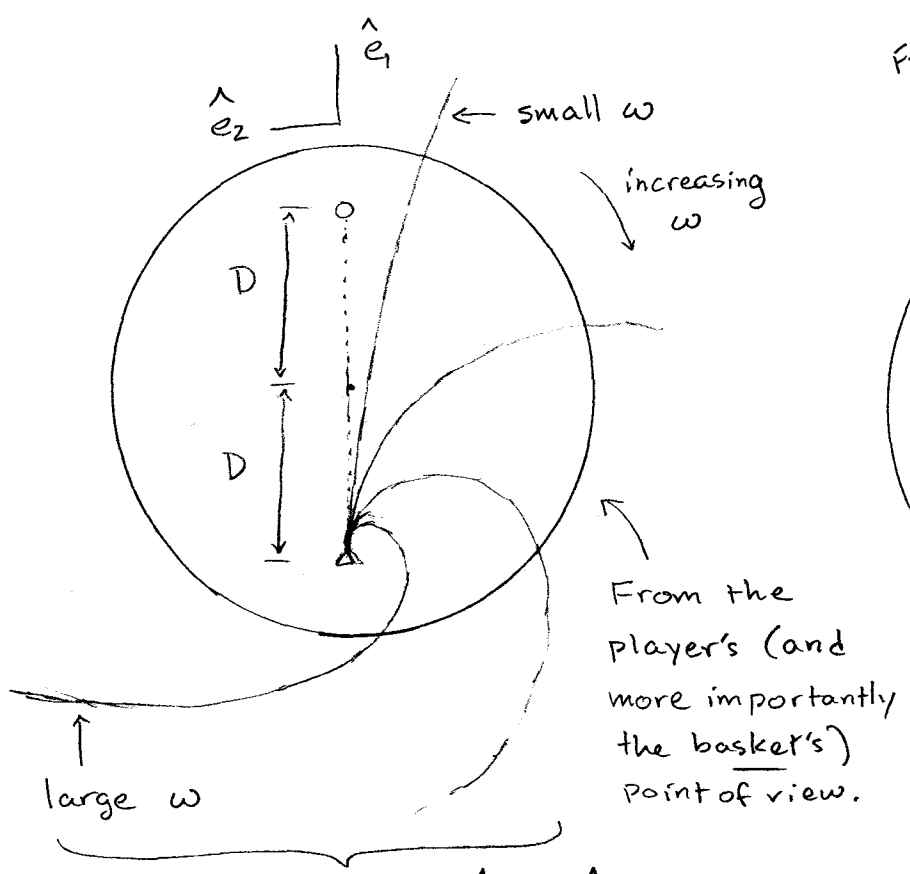 ê₁
ê₂
small ω
increasing
ω
D
D
From the
player's (and
more importantly
the basket's)
point of view.
large ω